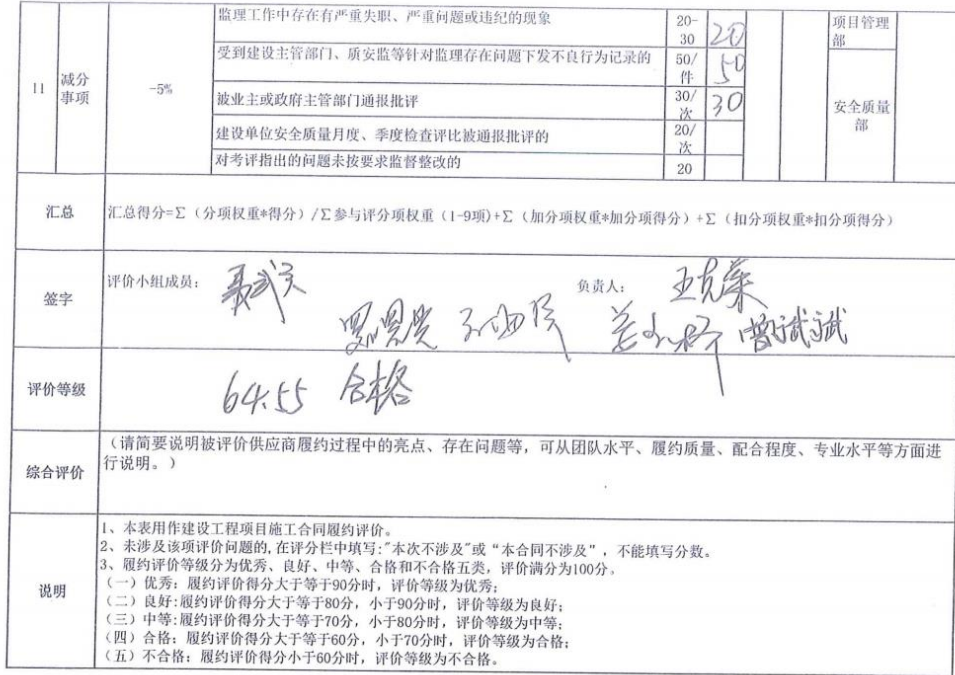 监理工作中存在有严重失职、严重问题或违纪的现象 20-30 20 项目管理部
11 减分事项 -5%
受到建设主管部门、质安监等针对监理存在问题下发不良行为记录的 50/件 50
被业主或政府主管部门通报批评 30/次 30 安全质量部
建设单位安全质量月度、季度检查评比被通报批评的 20/次
对考评指出的问题未按要求监督整改的 20
汇总 汇总得分=Σ（分项权重*得分）/Σ参与评分项权重（1-9项)+Σ（加分项权重*加分项得分）+Σ（扣分项权重*扣分项得分）
签字 评价小组成员： 负责人： 王克荣
评价等级 64.55 合格
综合评价 （请简要说明被评价供应商履约过程中的亮点、存在问题等，可从团队水平、履约质量、配合程度、专业水平等方面进
行说明。）
说明
1、本表用作建设工程项目施工合同履约评价。
2、未涉及该项评价问题的,在评分栏中填写:"本次不涉及"或“本合同不涉及”，不能填写分数。
3、履约评价等级分为优秀、良好、中等、合格和不合格五类，评价满分为100分。
（一）优秀：履约评价得分大于等于90分时，评价等级为优秀；
（二）良好:履约评价得分大于等于80分，小于90分时，评价等级为良好；
（三）中等:履约评价得分大于等于70分，小于80分时，评价等级为中等；
（四）合格：履约评价得分大于等于60分，小于70分时，评价等级为合格；
（五）不合格：履约评价得分小于60分时，评价等级为不合格。